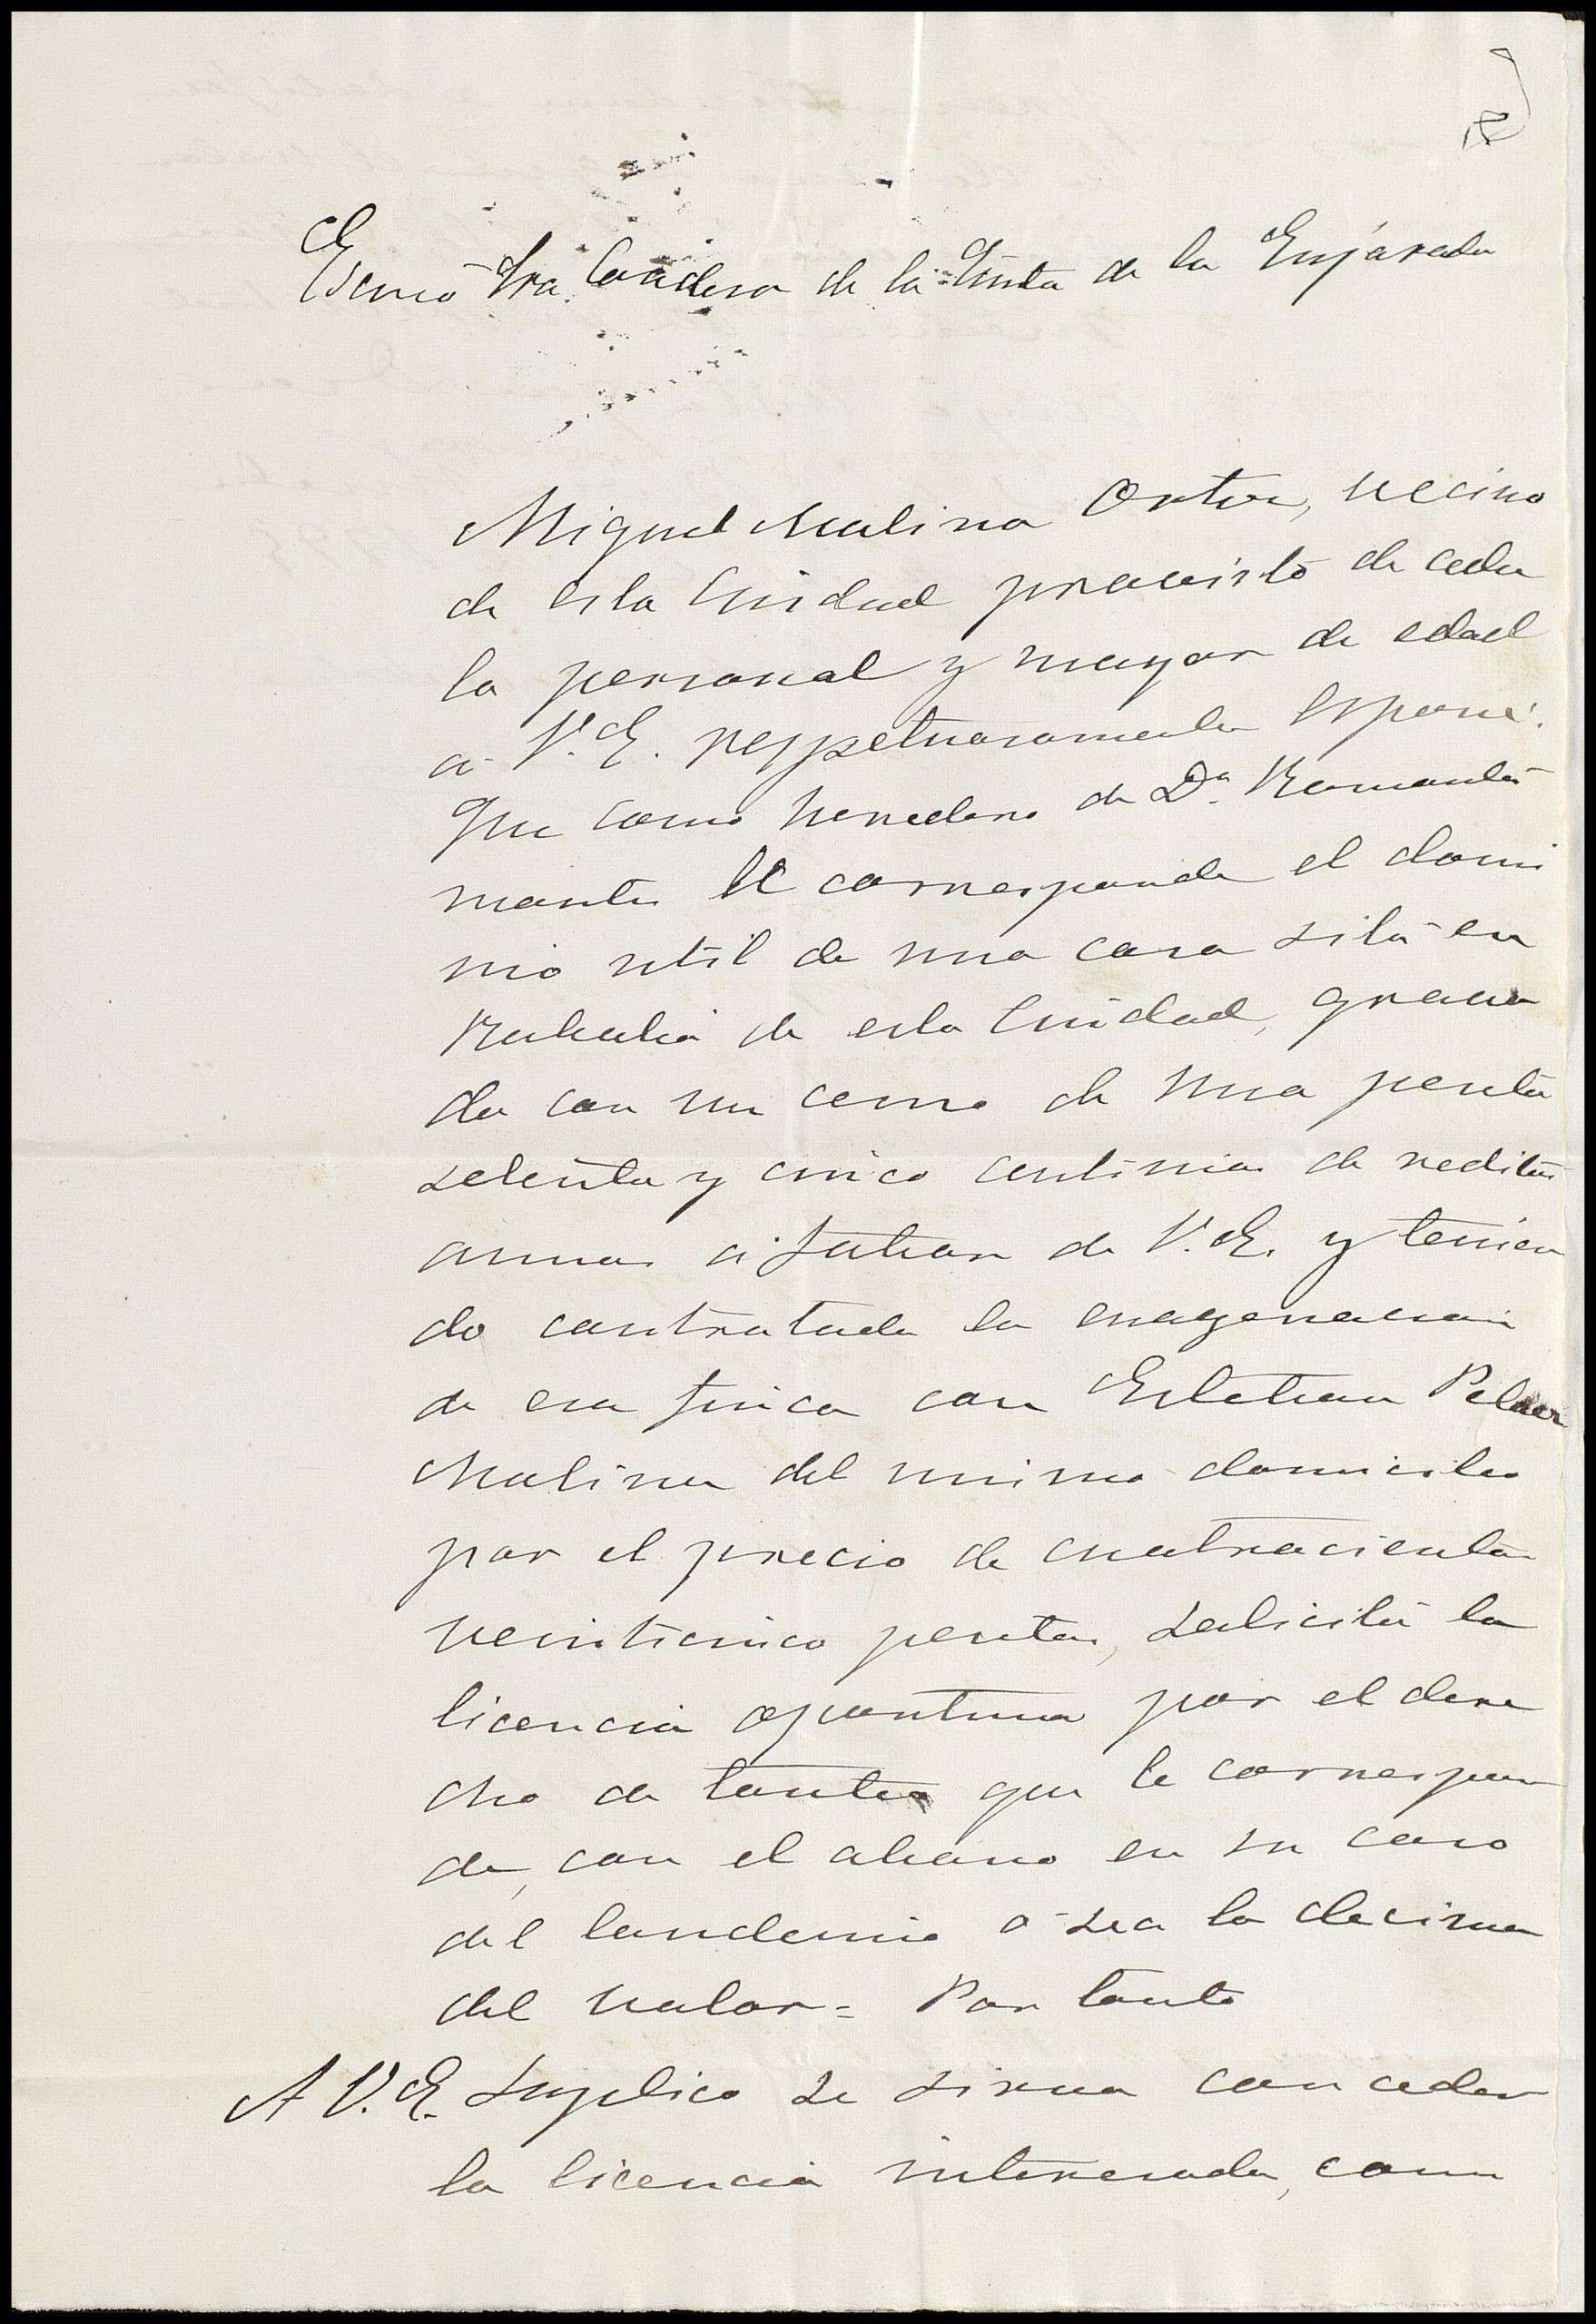 Escmo Sra. Condesa de la Quinta de la Enjarada
Miguel Molina Ortiz, vecino
de esta Ciudad provisto de cedu
la personal y mayor de edad
a V.E. respetuosamente espone:
que como heredero de Dª
le corresponde el domi
nio util de una casa sita en
de esta Ciudad, grava
da con un censo de una peseta
setenta y cinco centimos de reditos
anuos á fabor de V.E. y tenien
do contratada la enagenacion
de esa finca con Esteban
Molina del mismo domicilio
por el precio de cuatrocientas
veinticinco pesetas, solicita la
licencia oportuna por el dere
cho de tanteo que le correspon
de, con el abono en su caso
del laudemio o sea la decima
del valor = Por tanto
A V.E. Suplico se sirva conceder
la licencia interesada, com